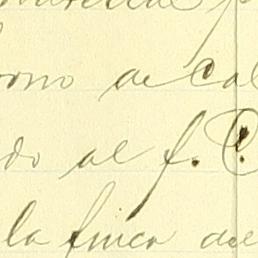 orno de cal
do al f. C.
la finca del